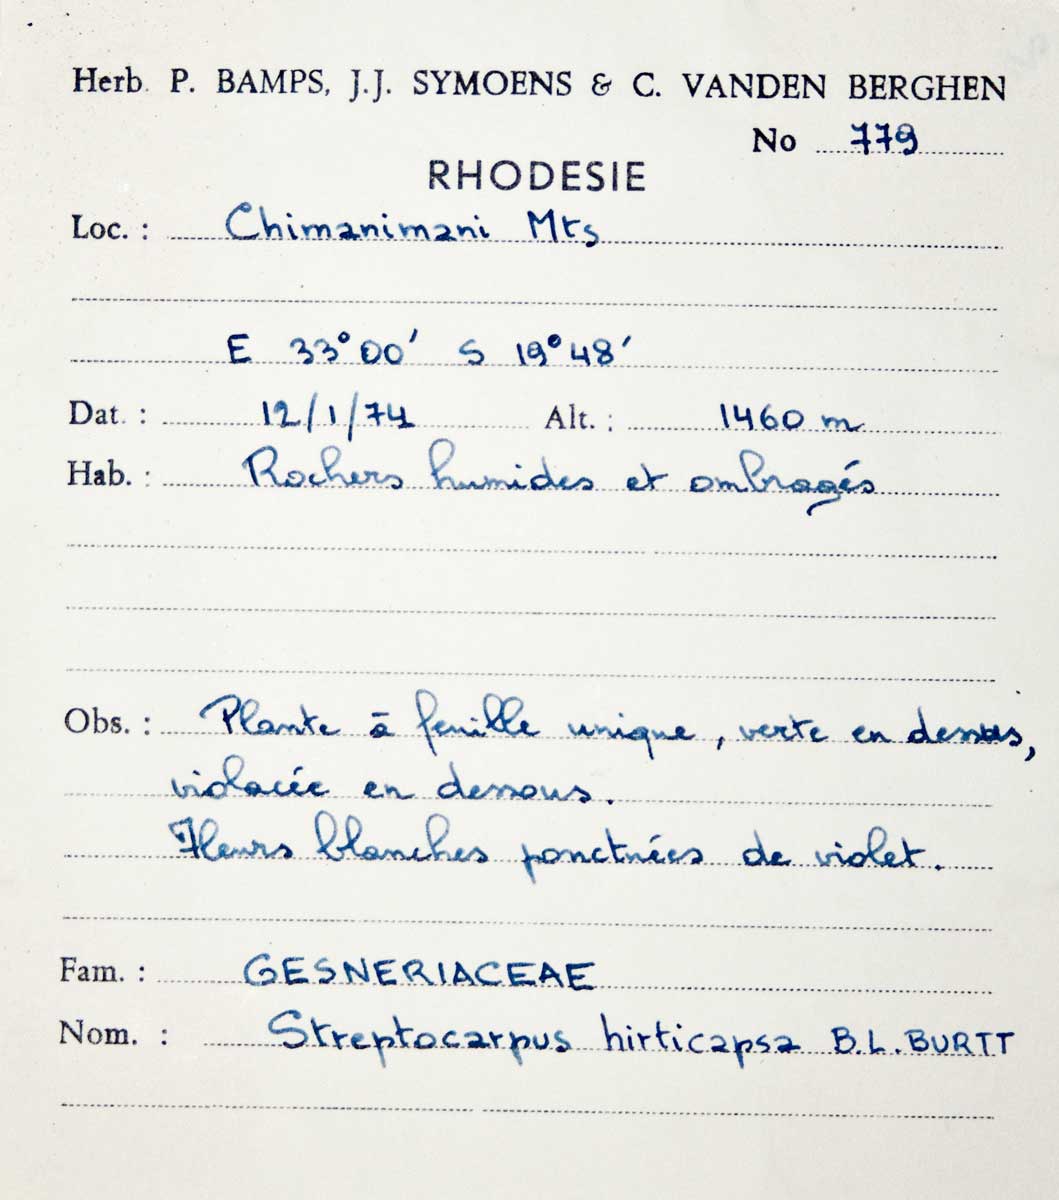 Herb. P. BAMPS, J.J. SYMOENS & C. VANDEN BERGHEN
No 779
RHODESIE
Loc. : Chimanimani Mts
E 33°00' S 19°48'
Dat. : 12/1/74 Alt. : 1460 m
Hab. : Rochers humides et ombragés
Obs. : Plante à feuille unique, verte en dessus,
violacée en dessous.
Fleurs blanches ponctuées de violet.
Fam. : GESNERIACEAE
Nom. : Streptocarpus hirticapsa B.L. BURTT